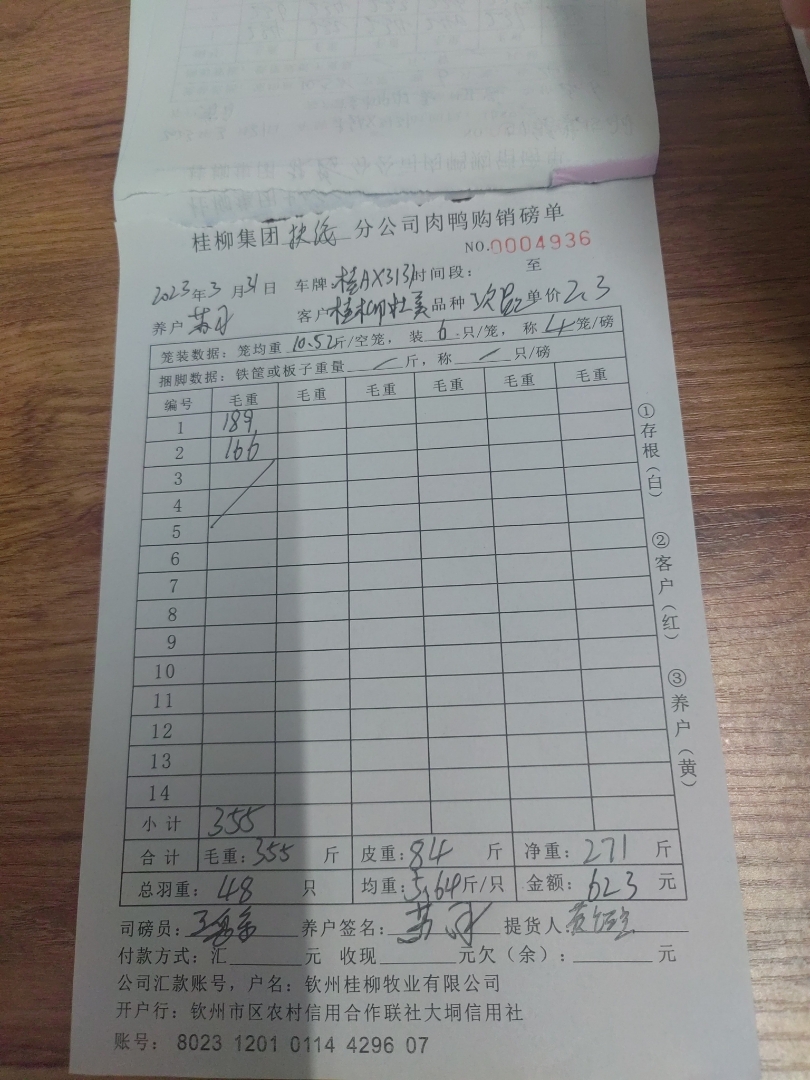 桂柳集团 扶绥 分公司肉鸭购销磅单
NO.0004936
2023年3月31日 车牌:桂AX313 时间段: 至
养户 苏 客户 桂柳 品种 次品 单价 2.3
笼装数据:笼均重 10.52斤/空笼,装 6 只/笼,称 4 笼/磅
捆脚数据:铁筐或板子重量 / 斤,称 / 只/磅
编号 毛重 毛重 毛重 毛重 毛重 毛重
1 189
2 166
3
4
5
6
7
8
9
10
11
12
13
14
小计 355
合计 毛重:355 斤 皮重:84 斤 净重:271 斤
总羽重:48 只 均重:5.64斤/只 金额:623 元
司磅员: 养户签名:苏 提货人:黄
付款方式:汇 元 收现 元欠(余): 元
公司汇款账号,户名:钦州桂柳牧业有限公司
开户行:钦州市区农村信用合作联社大垌信用社
账号: 8023 1201 0114 4296 07
①存根(白)
②客户(红)
③养户(黄)